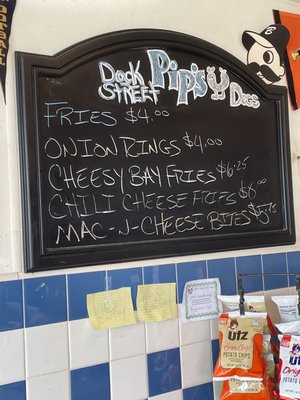 Dock Street Pip's Dogs
FRIES $4.00
ONION RINGS $4.00
CHEESY BAY FRIES $6.25
CHILI CHEESE FRIES $6.00
MAC-N-CHEESE BITES $5.75
UTZ
UTZ
POTATO CHIPS
UTZ
POTATO CHIPS